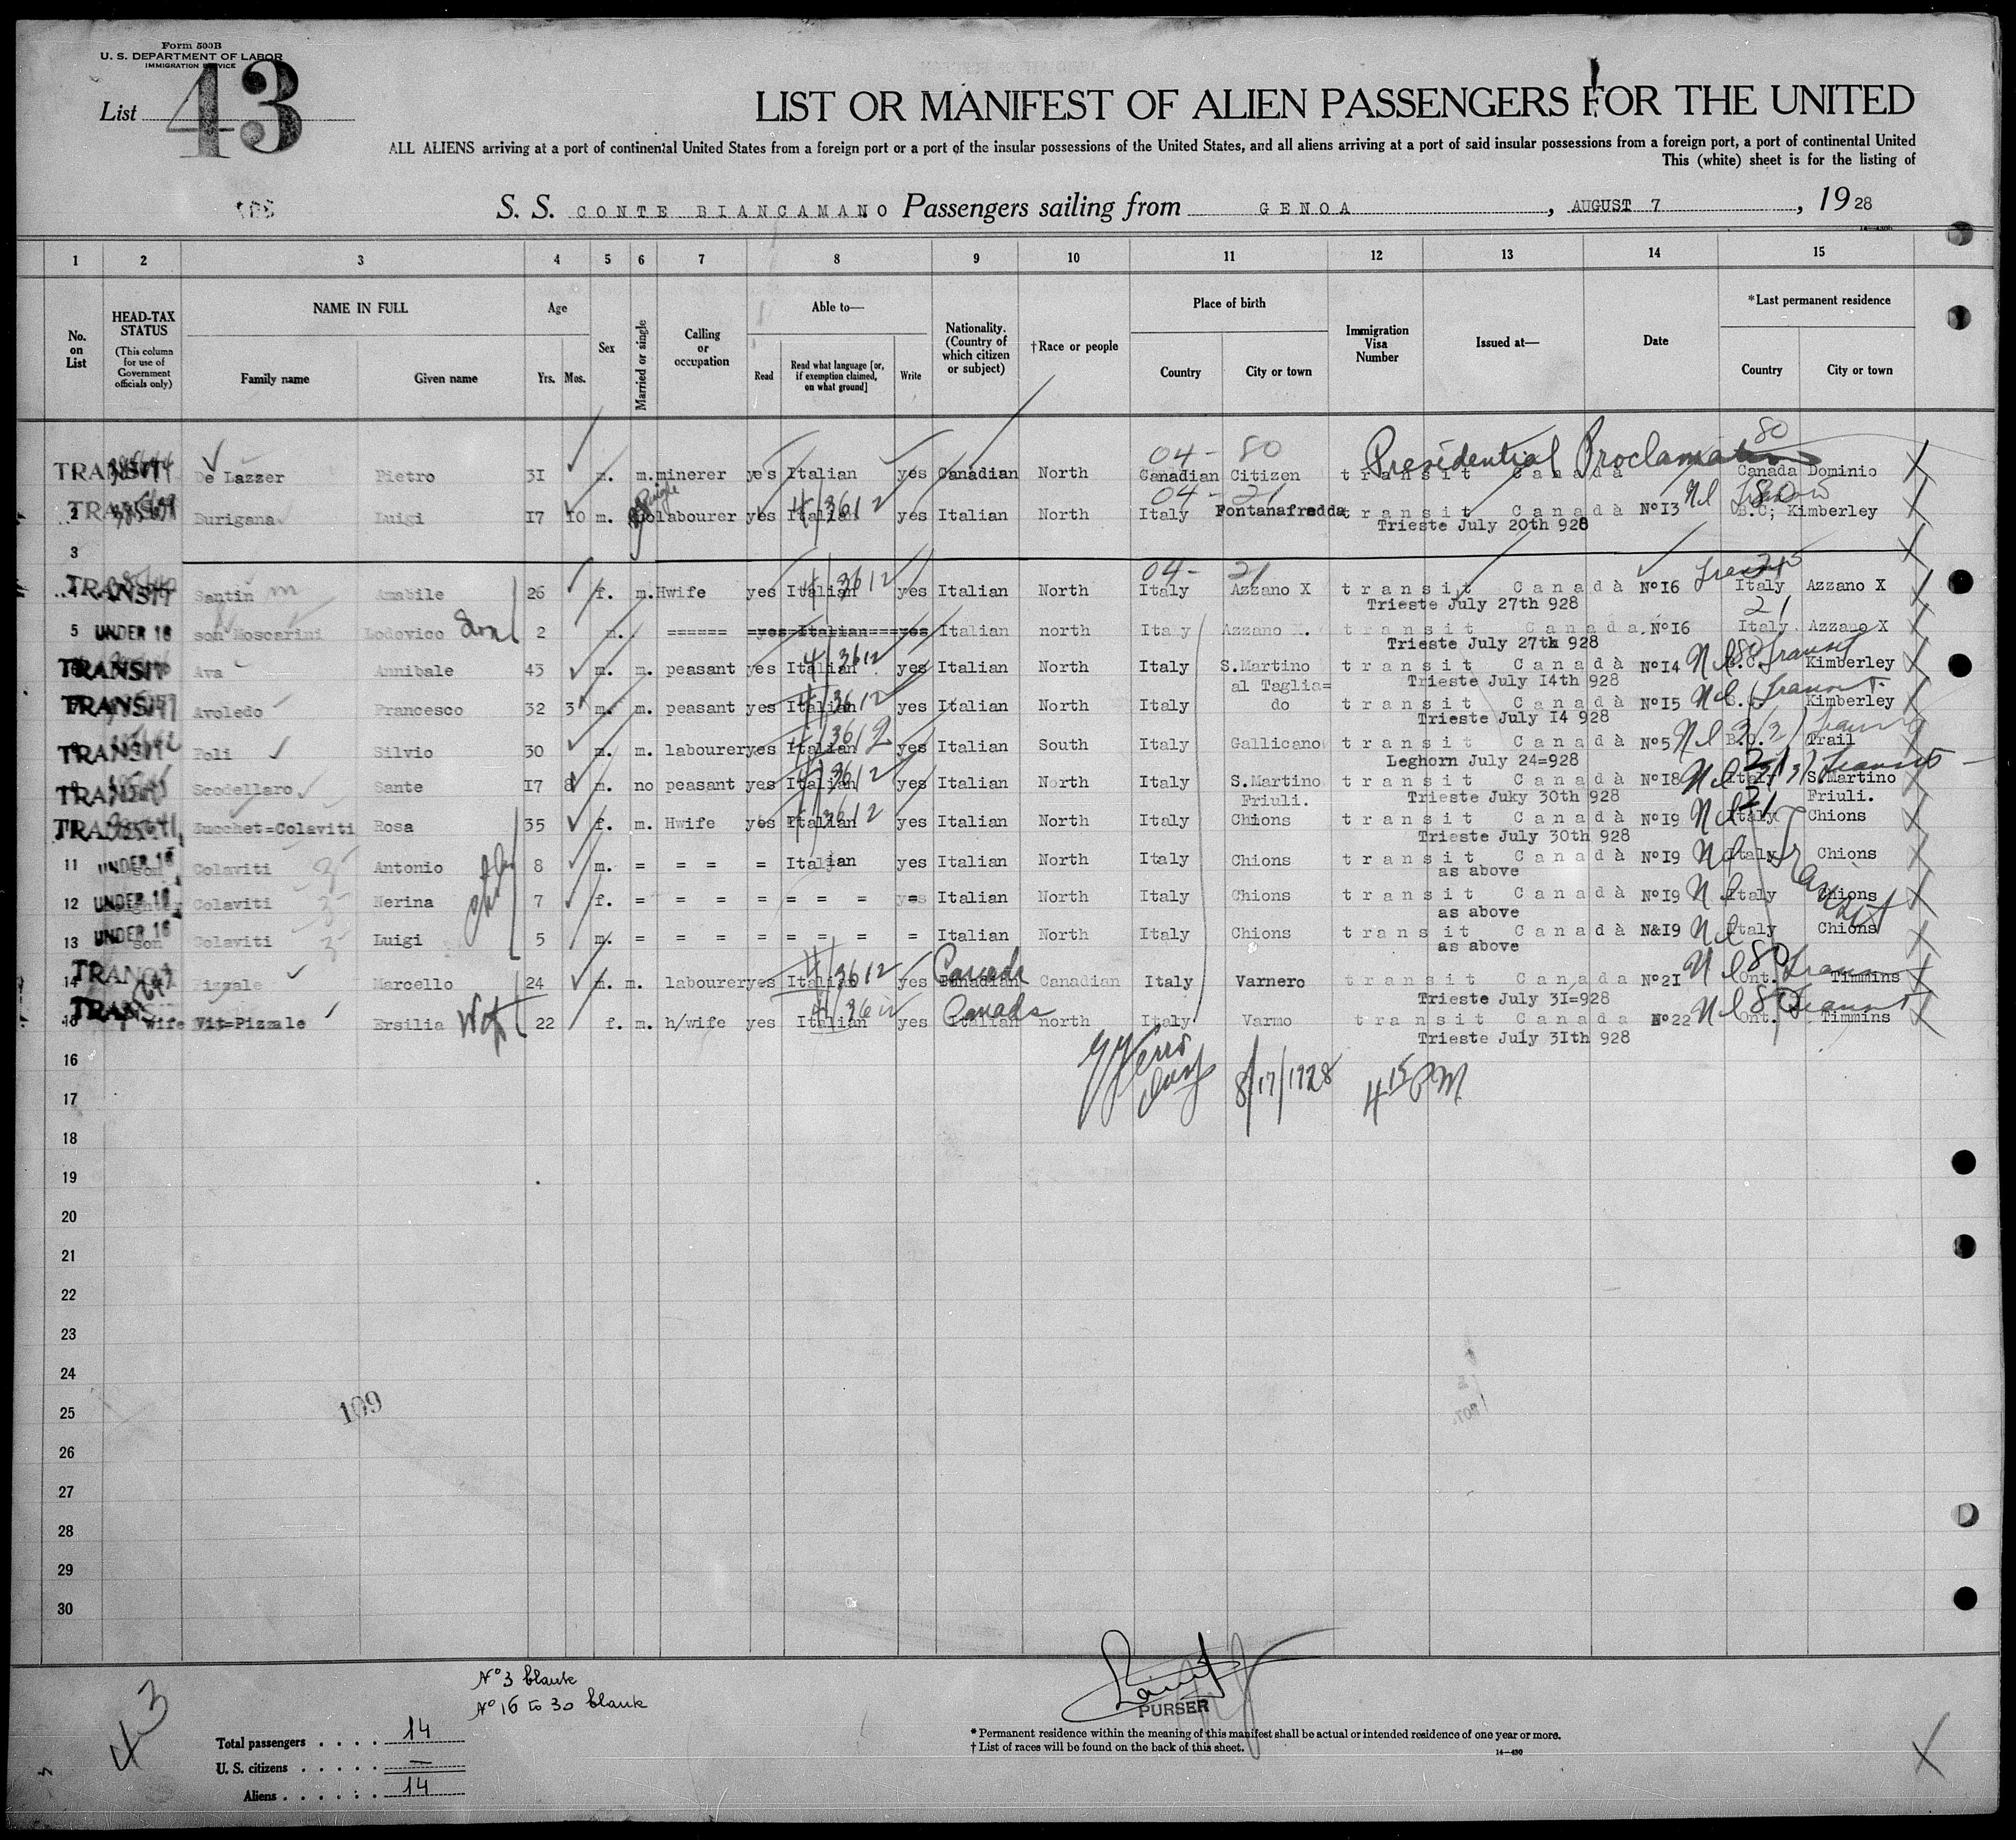 Form 500B
U. S. DEPARTMENT OF LABOR
IMMIGRATION SERVICE
List 43
LIST OR MANIFEST OF ALIEN PASSENGERS FOR THE UNITED
ALL ALIENS arriving at a port of continental United States from a foreign port or a port of the insular possessions of the United States, and all aliens arriving at a port of said insular possessions from a foreign port, a port of continental United
This (white) sheet is for the listing of
S. S. CONTE BIANCAMANO Passengers sailing from GENOA, AUGUST 7, 1928
1 2 3 4 5 6 7 8 9 10 11 12 13 14 15
No. on List
HEAD-TAX STATUS
(This column for use of Government officials only)
NAME IN FULL
Family name Given name
Age
Yrs. Mos.
Sex
Married or single
Calling or occupation
Able to—
Read
Read what language [or, if exemption claimed, on what ground]
Write
Nationality. (Country of which citizen or subject)
†Race or people
Place of birth
Country City or town
Immigration Visa Number
Issued at—
Date
*Last permanent residence
Country City or town
04- 80 Presidential Proclamation 80
TRANSIT De Lazzer Pietro 31 m. m. minerer yes Italian yes Canadian North Canadian Citizen transit Canada Canada Dominio
04- 21
2 TRANSIT Durigana Luigi 17 10 m. labourer yes Italian yes Italian North Italy Fontanafredda transit Canadà No13 B.C; Kimberley
Trieste July 20th 928
3
04- 21
TRANSIT Santin Amabile 26 f. m. Hwife yes Italian yes Italian North Italy Azzano X transit Canadà No16 Italy Azzano X
Trieste July 27th 928
5 UNDER 16 son Moscarini Lodovico Son 2 m. ====== =yes=Italian===yes Italian north Italy Azzano X. transit Canada. No16 Italy Azzano X
Trieste July 27th 928
TRANSIT Ava Annibale 43 m. m. peasant yes Italian yes Italian North Italy S.Martino transit Canadà No14 B.C. Kimberley
al Taglia= Trieste July 14th 928
TRANSIT Avoledo Francesco 32 3 m. m. peasant yes Italian yes Italian North Italy do transit Canadà No15 Kimberley
Trieste July 14 928
TRANSIT Poli Silvio 30 m. m. labourer yes Italian yes Italian South Italy Gallicano transit Canadà No5 B.C. Trail
Leghorn July 24=928
TRANSIT Scodellaro Sante 17 8 m. no peasant yes Italian yes Italian North Italy S.Martino transit Canadà No18 Italy S.Martino
Friuli. Trieste Juky 30th 928 Friuli.
TRANSIT Zucchet=Colaviti Rosa 35 f. m. Hwife yes Italian yes Italian North Italy Chions transit Canadà No19 Italy Chions
Trieste July 30th 928
11 UNDER 16 son Colaviti Antonio 8 m. = = = = Italian yes Italian North Italy Chions transit Canadà No19 Italy Chions
as above
12 UNDER 16 Colaviti Nerina 7 f. = = = = = = = Italian North Italy Chions transit Canadà No19 Italy Chions
as above
13 UNDER 16 son Colaviti Luigi 5 m. = = = = = = = = Italian North Italy Chions transit Canadà N&19 Italy Chions
as above
14 Pizzale Marcello 24 m. m. labourer yes Italian yes Canada Canadian Canadian Italy Varnero transit Canada No21 Ont. Timmins
Trieste July 31=928
TRANS wife Vit=Pizzale Ersilia 22 f. m. h/wife yes Italian yes Canada Italian north Italy Varmo transit Canada No22 Ont. Timmins
Trieste July 31th 928
8/17/1928 4 15 PM
16
17
18
19
20
21
22
23
24
25
109
26
27
28
29
30
No 3 blank
No 16 to 30 blank
43
Total passengers . . . . 14
U. S. citizens . . . . . —
Aliens . . . . . . 14
PURSER
* Permanent residence within the meaning of this manifest shall be actual or intended residence of one year or more.
† List of races will be found on the back of this sheet.
14—430